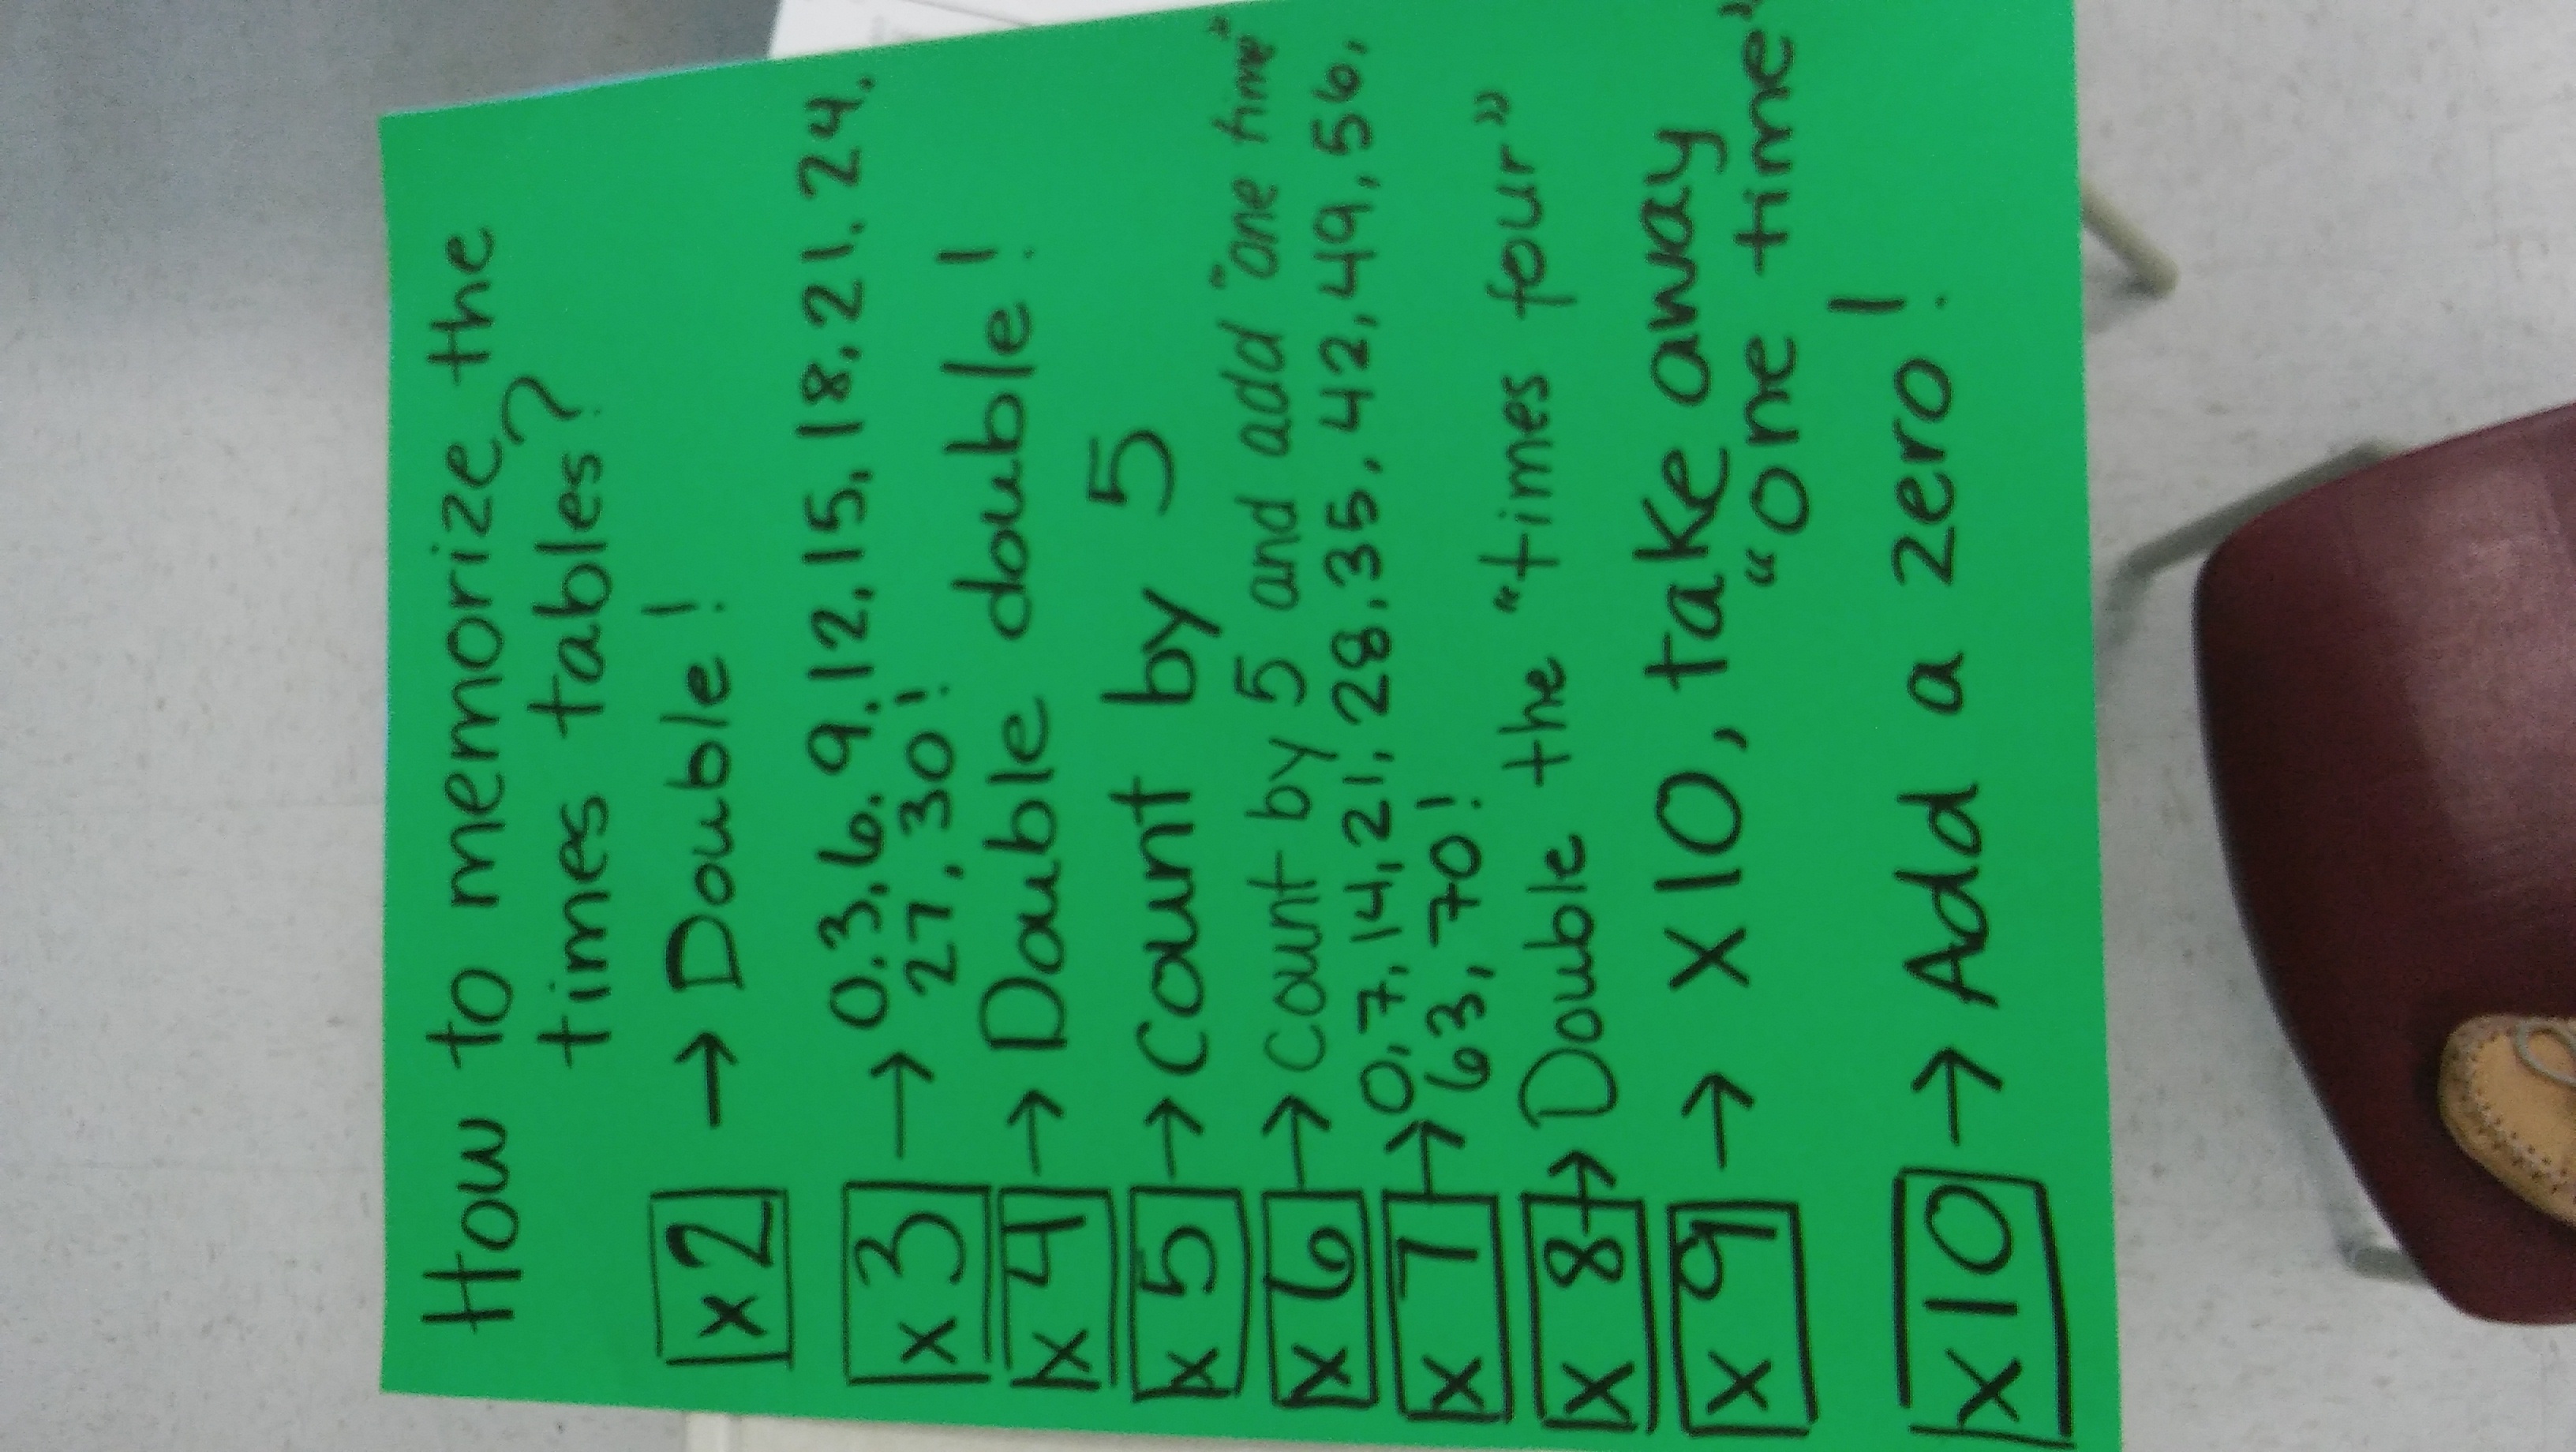 How to memorize the
times tables?
x2 → Double!
x3 → 0.3.6.9.12.15.18.21.24.
27.30!
x4 → Double double!
x5 → Count by 5
x6 → Count by 5 and add "one time"
x7 → 0,7,14,21,28,35,42,49,56,
63,70!
x8 → Double the "times four"
x9 → x10, take away
"one time"
x10 → Add a zero!